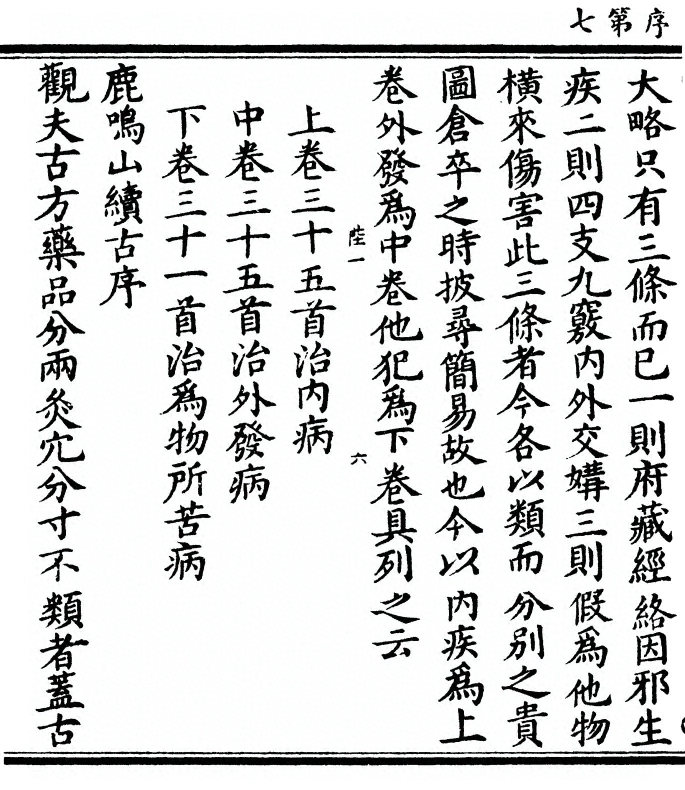 序第七
大略只有三條而已一則府藏經絡因邪生
疾二則四支九竅內外交媾三則假爲他物
橫來傷害此三條者今各以類而分別之貴
圖倉卒之時披尋簡易故也今以內疾爲上
卷外發爲中卷他犯爲下卷具列之云
陸一
六
上卷三十五首治內病
中卷三十五首治外發病
下卷三十一首治爲物所苦病
鹿鳴山續古序
觀夫古方藥品分兩灸穴分寸不類者蓋古